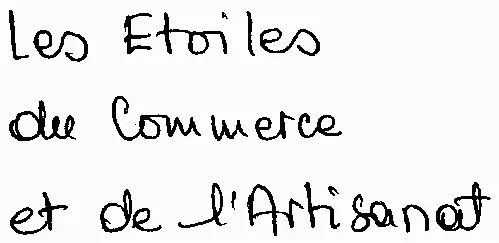 Les Etoiles
du Commerce
et de l'Artisanat